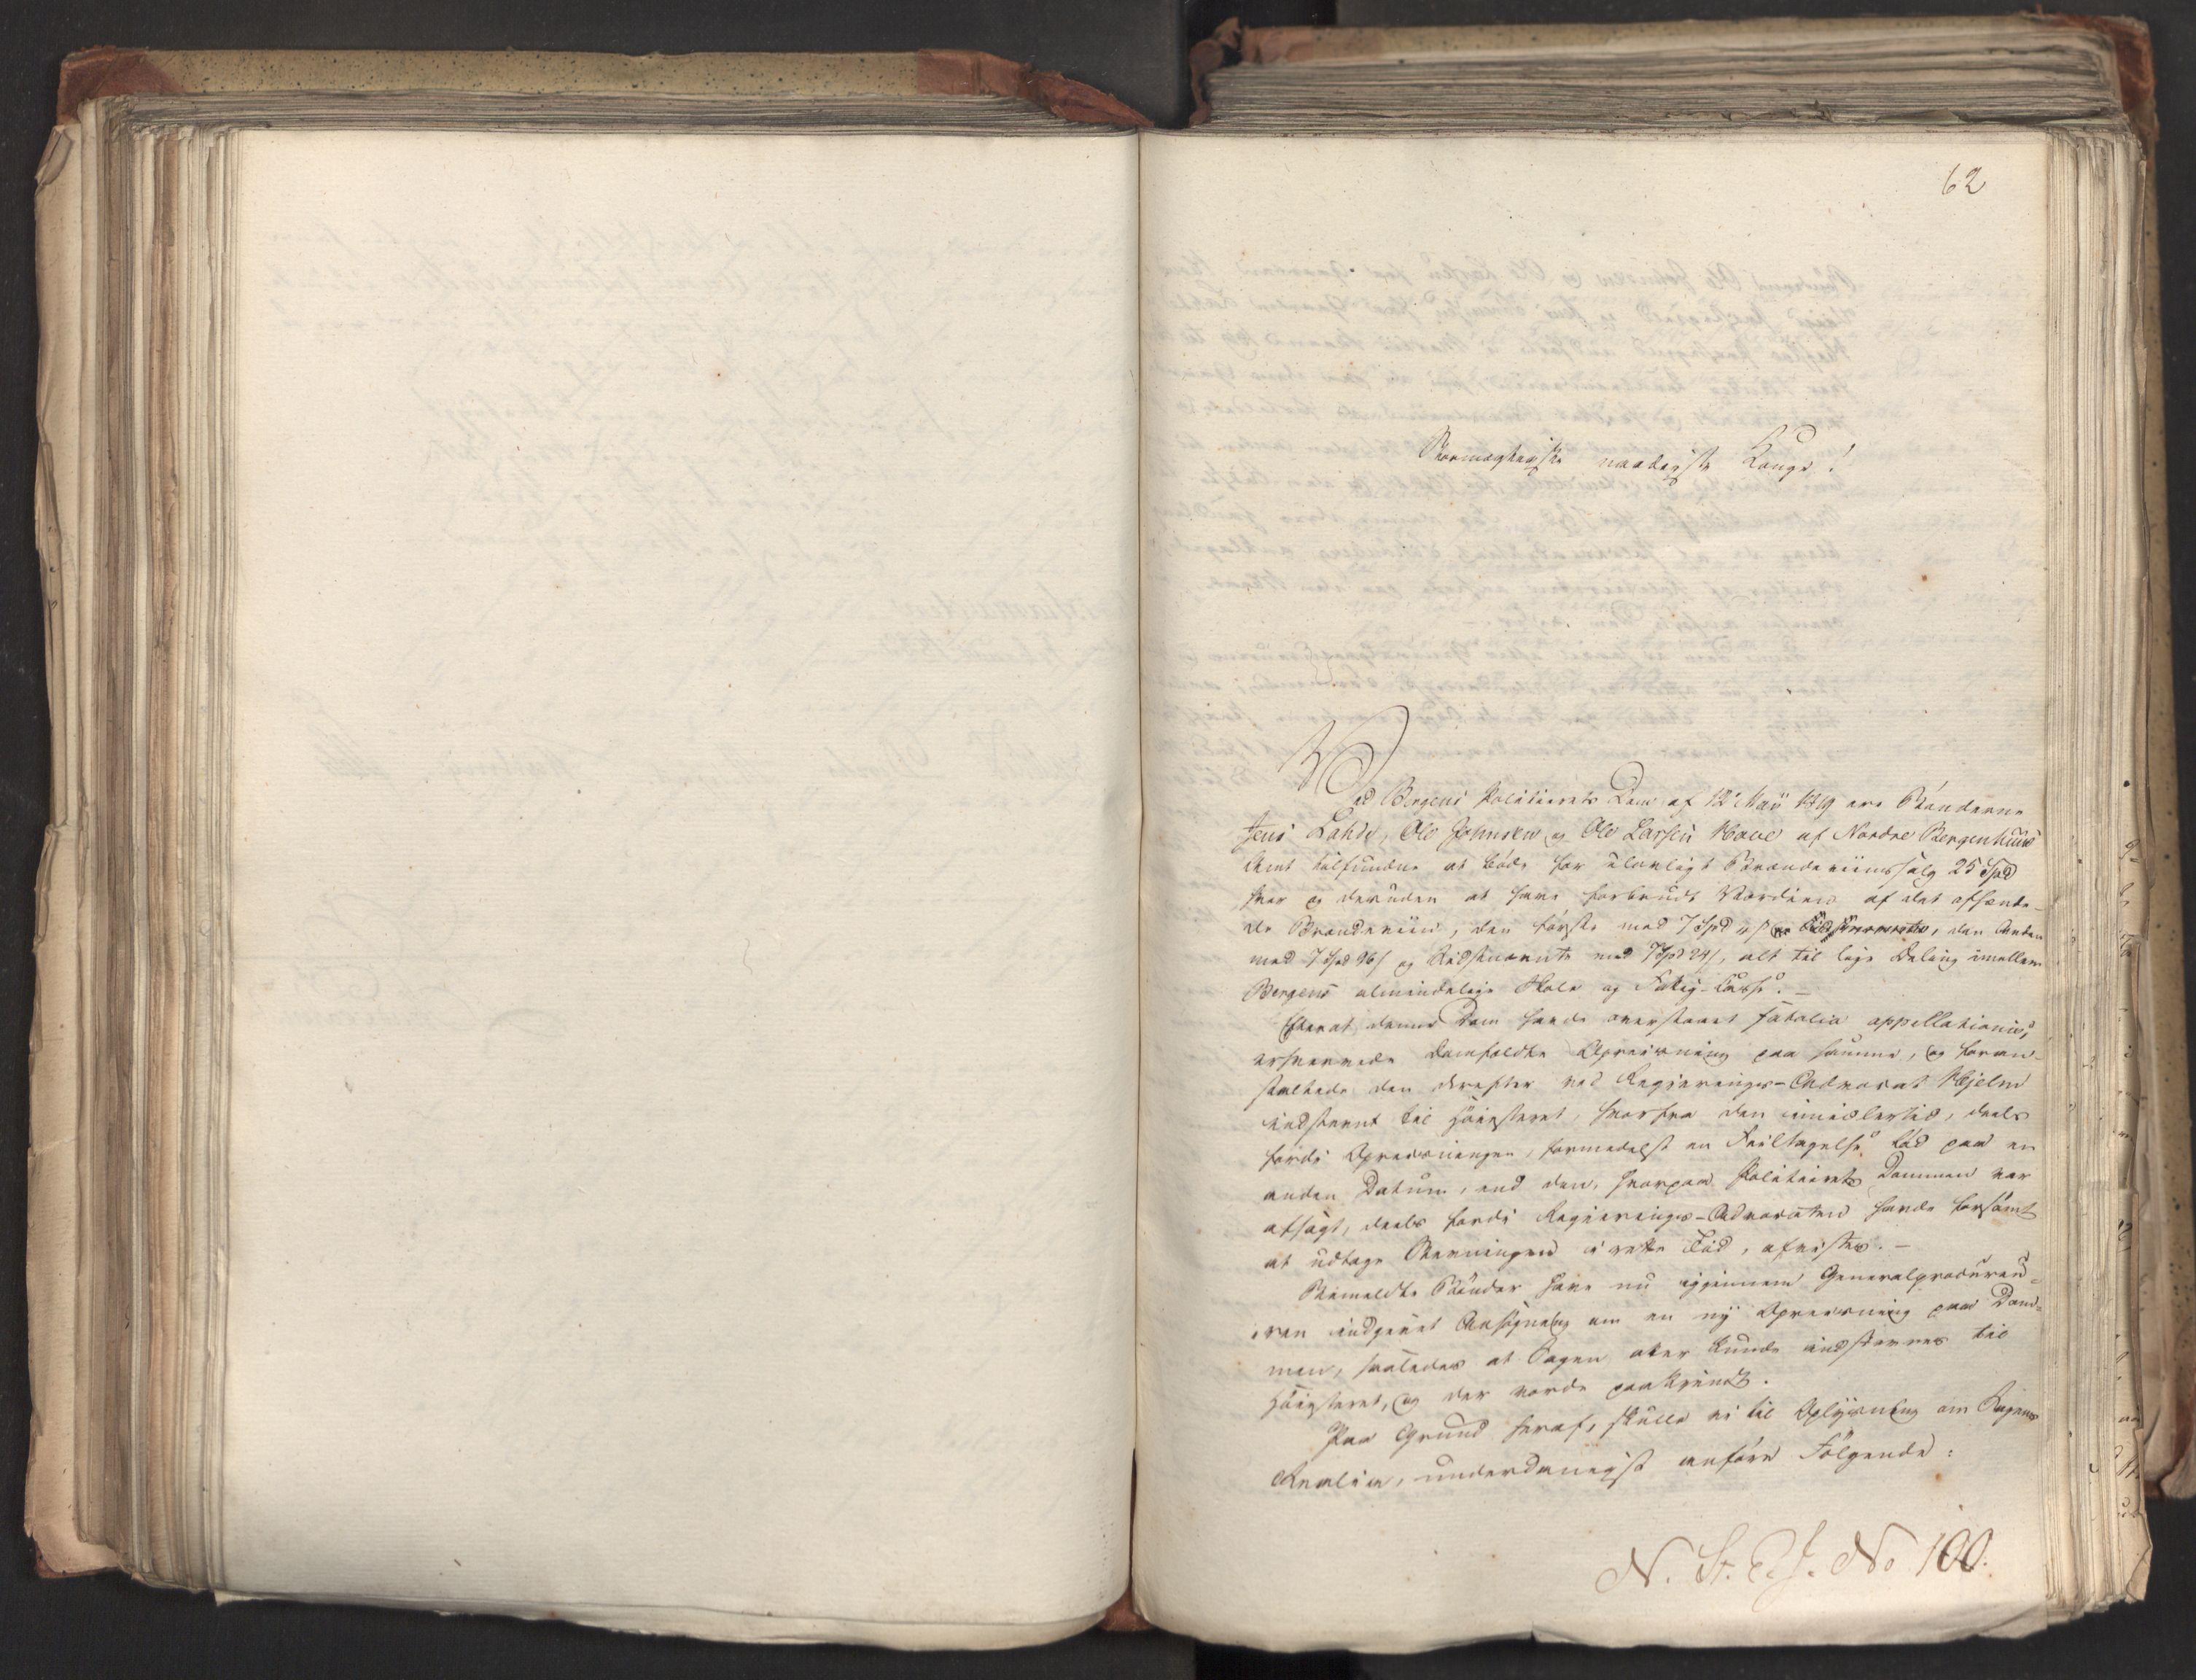 62
Stormægtigste naadigste Konge!
Ved Bergens Politierets Dom af 12 Maii 1819 ere Bönderne
Jens Lahde, Ole Johnsen og Ole Larsen Hove af Nordre Bergenhuus
Amt tilfundne at böde for ulovligt Brændeviinssalg 25 Spd
hver og desuden at have forbrudt Værdien af det afhænde-
de Brændeviin, den förste med 7 Spd, den Anden
med 7 Spd 96 s og Sidstnævnte med 7 Spd 24 s, alt til lige Deling imellem
Bergens almindelige Skole og Fattig-Casse. —
Efterat denne Dom havde overstaaet fatalia appellationis,
erhvervede Domfældte Opreisning paa samme, og foran-
staltede den derefter ved Regjerings-Advocat Hjelm
indstevnt til Höiesteret, hvorfra den imidlertid, deels
fordi Opreisningen, formedelst en Feiltagelse löd paa en
anden Datum, end den, hvorpaa Politierets Dommen var
afsagt, deels fordi Regjerings-Advocaten havde forsömt
at udtage Stevningen i rette Tid, afvistes. —
Bemeldte Bönder have nu igjennem Generalprocureu-
ren indgivet Ansögning om en ny Opreisning paa Dom-
men, saaledes at Sagen atter kunde indstevnes til
Höiesteret, og der vorde paakjendt.
Paa Grund heraf, skulle vi til Oplysning om Sagens
Realia, underdanigst anföre Fölgende:
N. St. R. J. No 100.